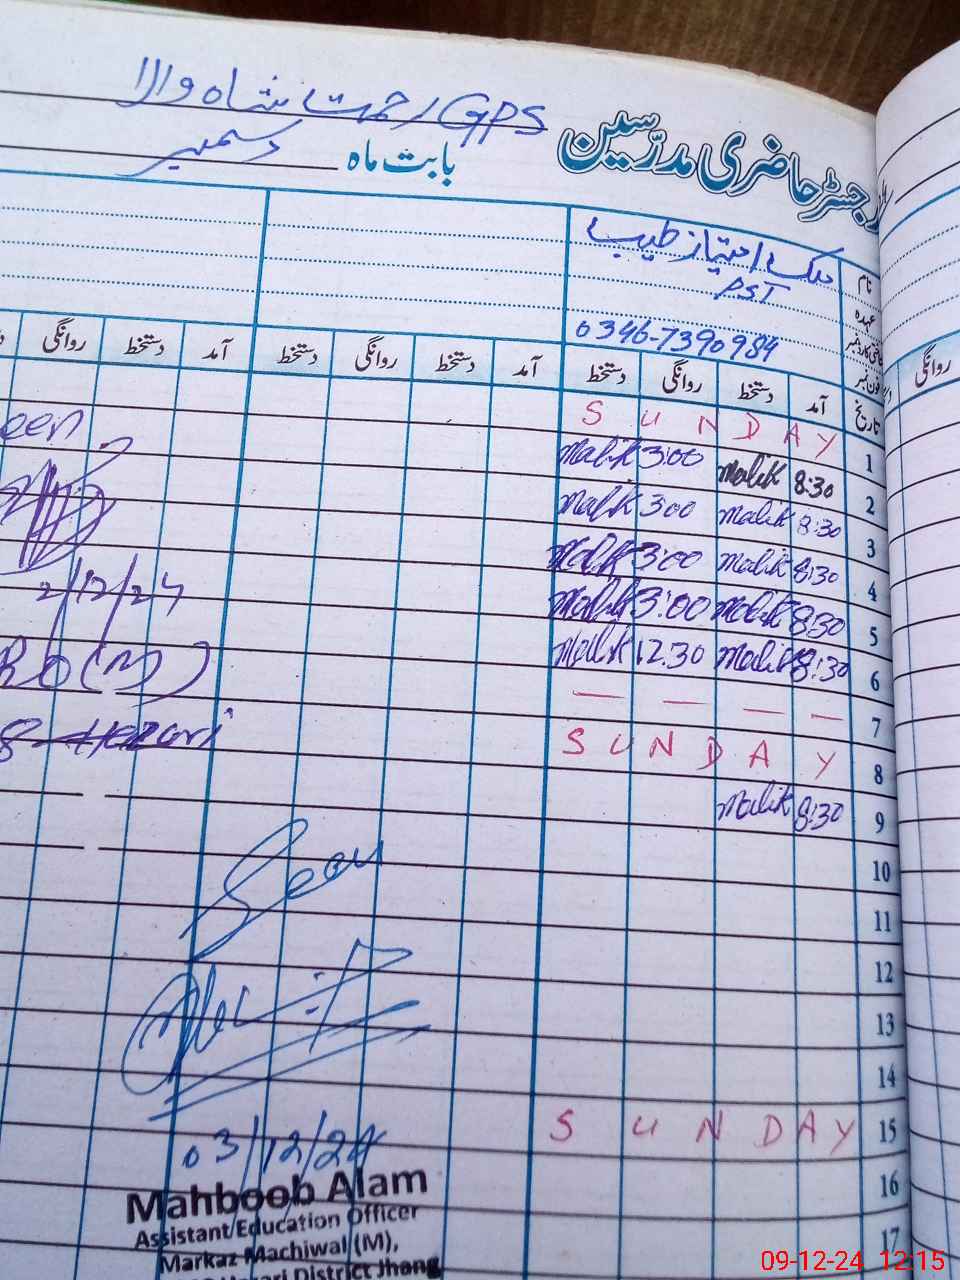 GPS رحمت شاہ والا
رجسٹر حاضری مدرسین
بابت ماہ دسمبر
نام ملک امتیاز طیب
عہدہ PST
فون نمبر 0346-7390984
تاریخ آمد دستخط روانگی دستخط آمد دستخط روانگی دستخط آمد دستخط روانگی
روانگی
1 SUNDAY
2 8:30 Malik 3:00 Malik
3 8:30 Malik 3:00 Malik
4 8:30 Malik 3:00 Malik
5 8:30 Malik 3:00 Malik
6 8:30 Malik 12.30 Malik
7 — — — —
8 SUNDAY
9 8:30 Malik
10
11
12
13
14
15 SUNDAY
16
17
een
2/12/24
(M)
Hazari
Seen
03/12/24
Mahboob Alam
Assistant Education Officer
Markaz Machiwal (M),
Hazari District Jhang
09-12-24 12:15